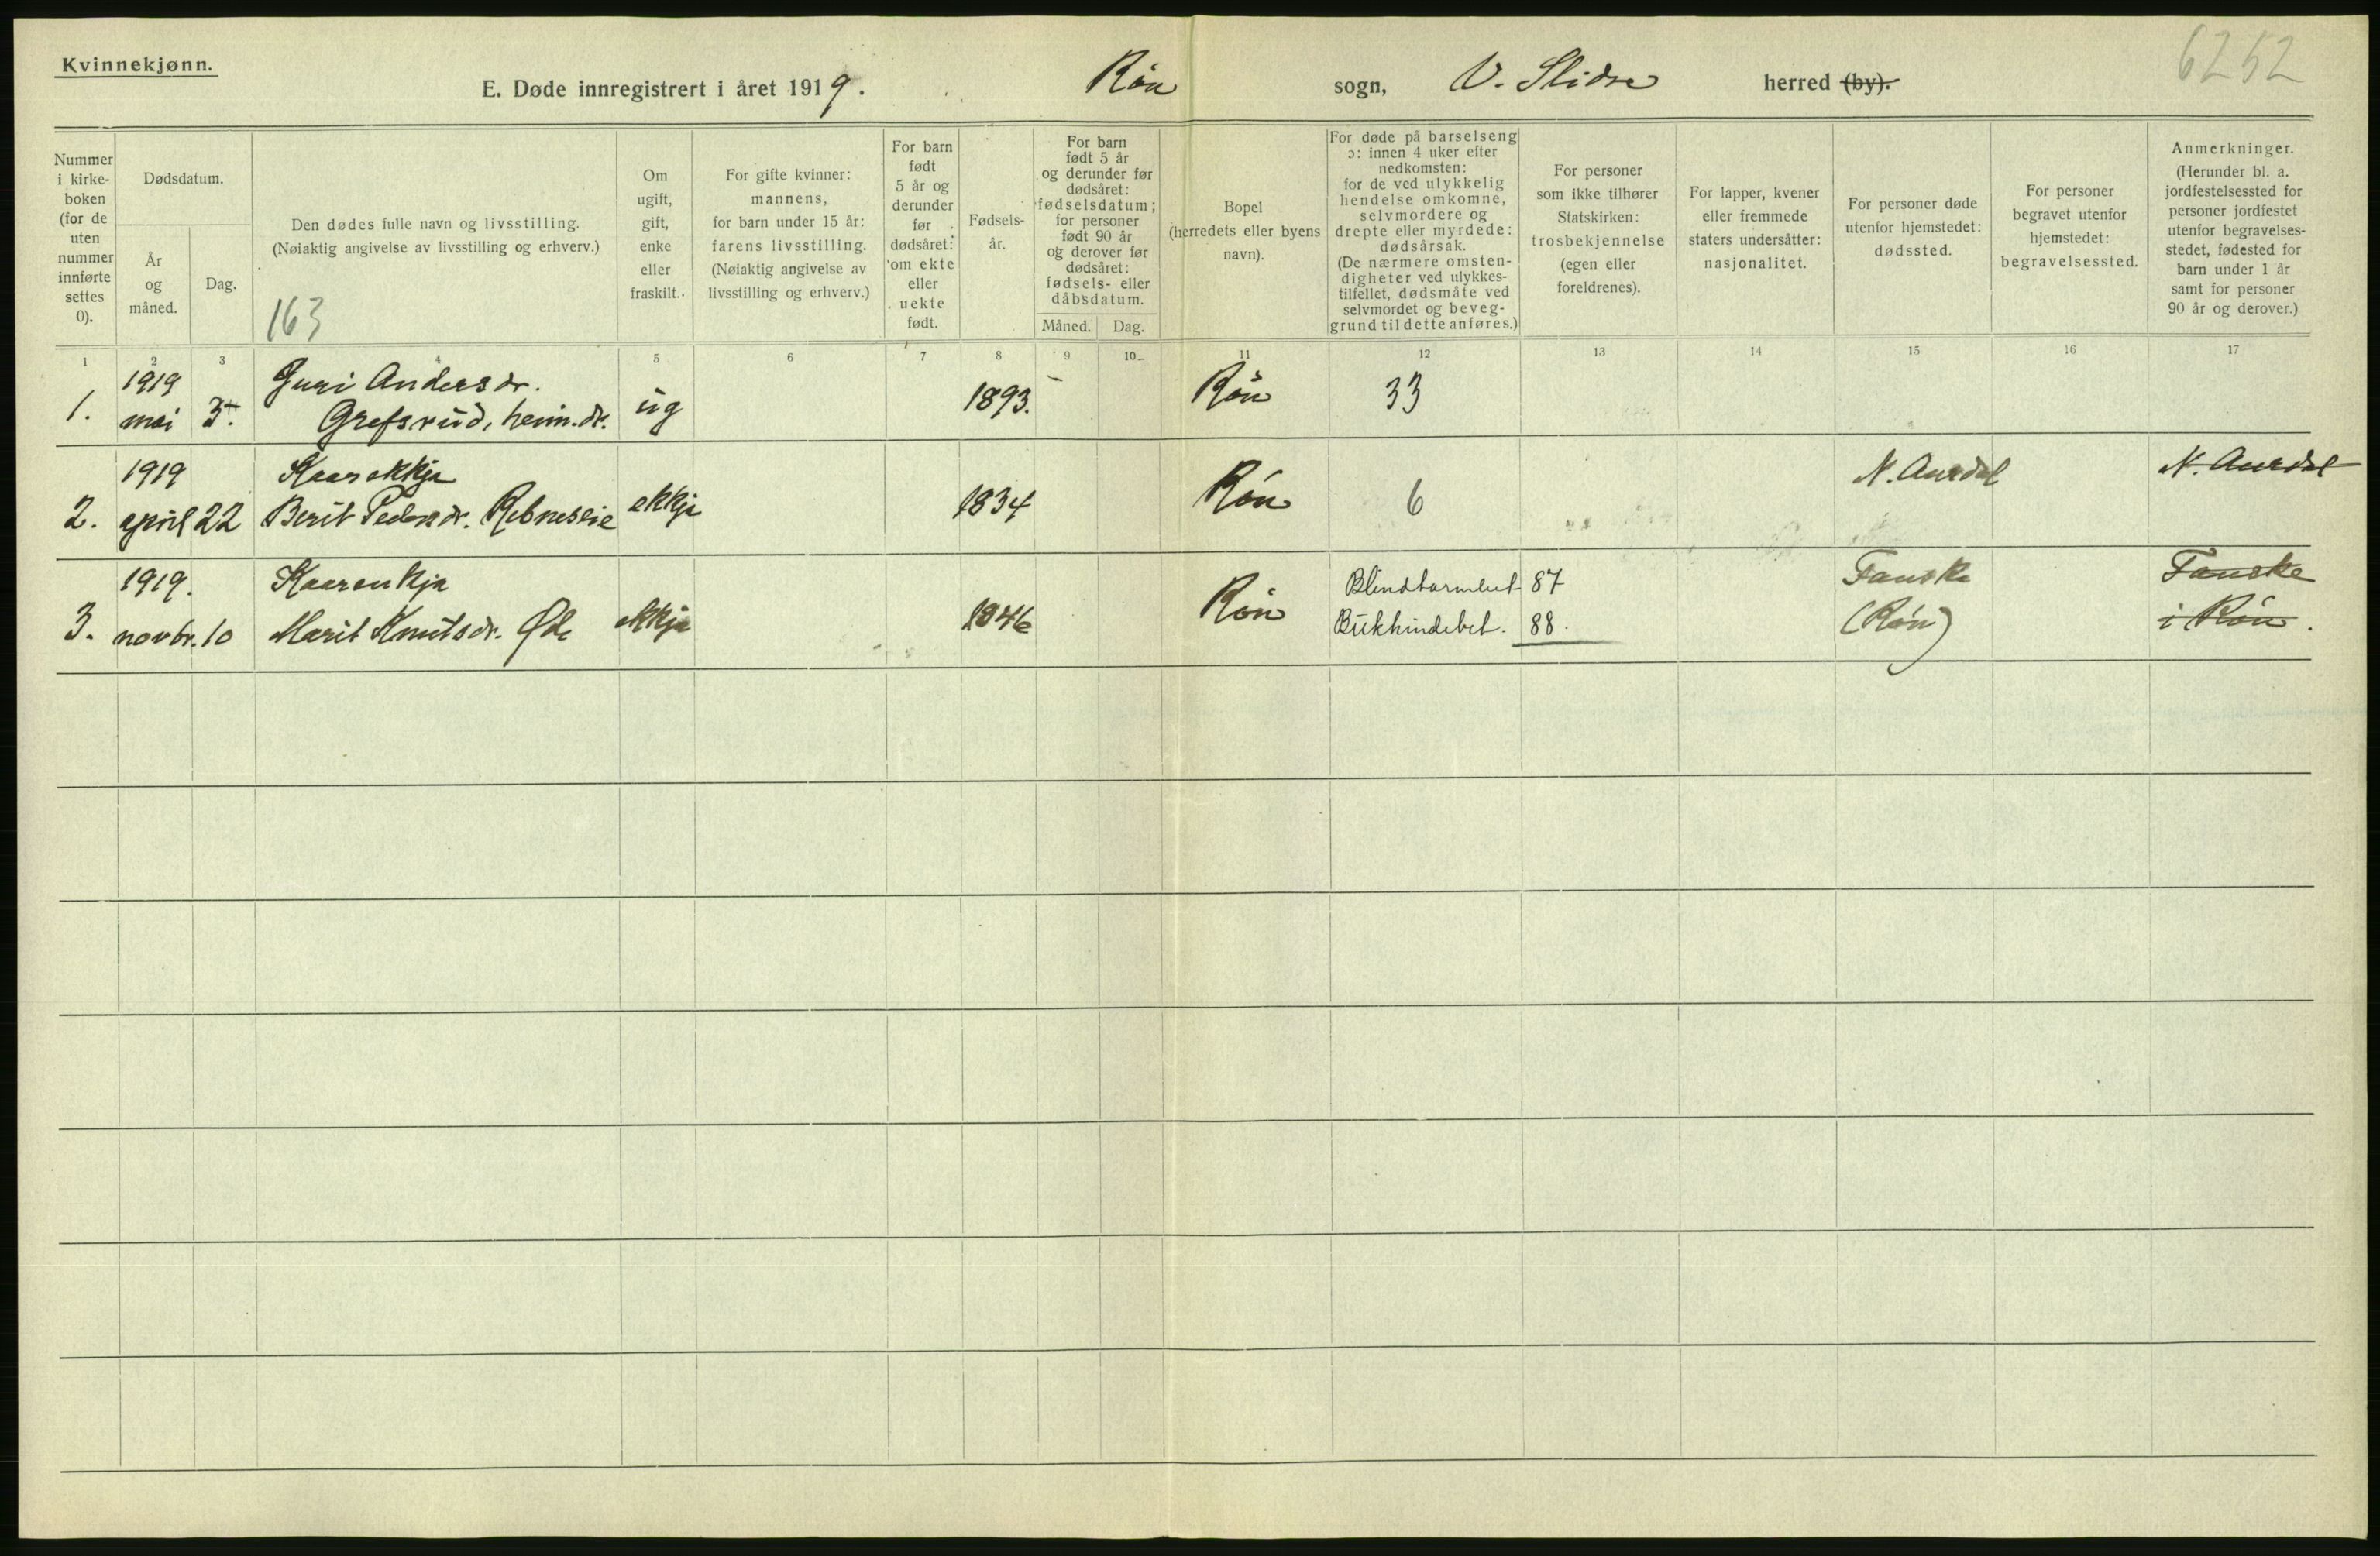 Kvinnekjønn.
6252
E. Døde innregistrert i året 1919. Røn sogn, V. Slidre herred (by).
Nummer i kirkeboken (for de uten nummer innførte settes 0).
Dødsdatum.
År og måned.
Dag.
Den dødes fulle navn og livsstilling.
(Nøiaktig angivelse av livsstilling og erhverv.)
163
Om ugift, gift, enke eller fraskilt.
For gifte kvinner: mannens, for barn under 15 år: farens livsstilling. (Nøiaktig angivelse av livsstilling og erhverv.)
For barn født 5 år og derunder før dødsåret: om ekte eller uekte født.
Fødselsår.
For barn født 5 år og derunder før dødsåret: fødselsdatum; for personer født 90 år og derover før dødsåret: fødsels- eller dåbsdatum.
Måned. Dag.
Bopel (herredets eller byens navn).
For døde på barselseng ɔ: innen 4 uker efter nedkomsten: for de ved ulykkelig hendelse omkomne, selvmordere og drepte eller myrdede: dødsårsak. (De nærmere omstendigheter ved ulykkestilfellet, dødsmåte ved selvmordet og beveggrund til dette anføres.)
For personer som ikke tilhører Statskirken: trosbekjennelse (egen eller foreldrenes).
For lapper, kvener eller fremmede staters undersåtter: nasjonalitet.
For personer døde utenfor hjemstedet: dødssted.
For personer begravet utenfor hjemstedet: begravelsessted.
Anmerkninger. (Herunder bl. a. jordfestelsessted for personer jordfestet utenfor begravelsesstedet, fødested for barn under 1 år samt for personer 90 år og derover.)
1 2 3 4 5 6 7 8 9 10 11 12 13 14 15 16 17
1919 Guri Andersdr.
1. mai 3. Grefsrud, heim.dr. ug 1893. Røn 33
1919 Kaarekkja
2. april 22 Berit Pedersdr. Rebneslie ekkja 1834 Røn 6 N. Aurdal N. Aurdal
1919. Kaarenkja Blindtarmbet 87 Fauske Fauske
3. novbr. 10 Marit Knutsdr. Øde ekkja 1846 Røn Bukhindebet. 88. (Røn) i Røn.